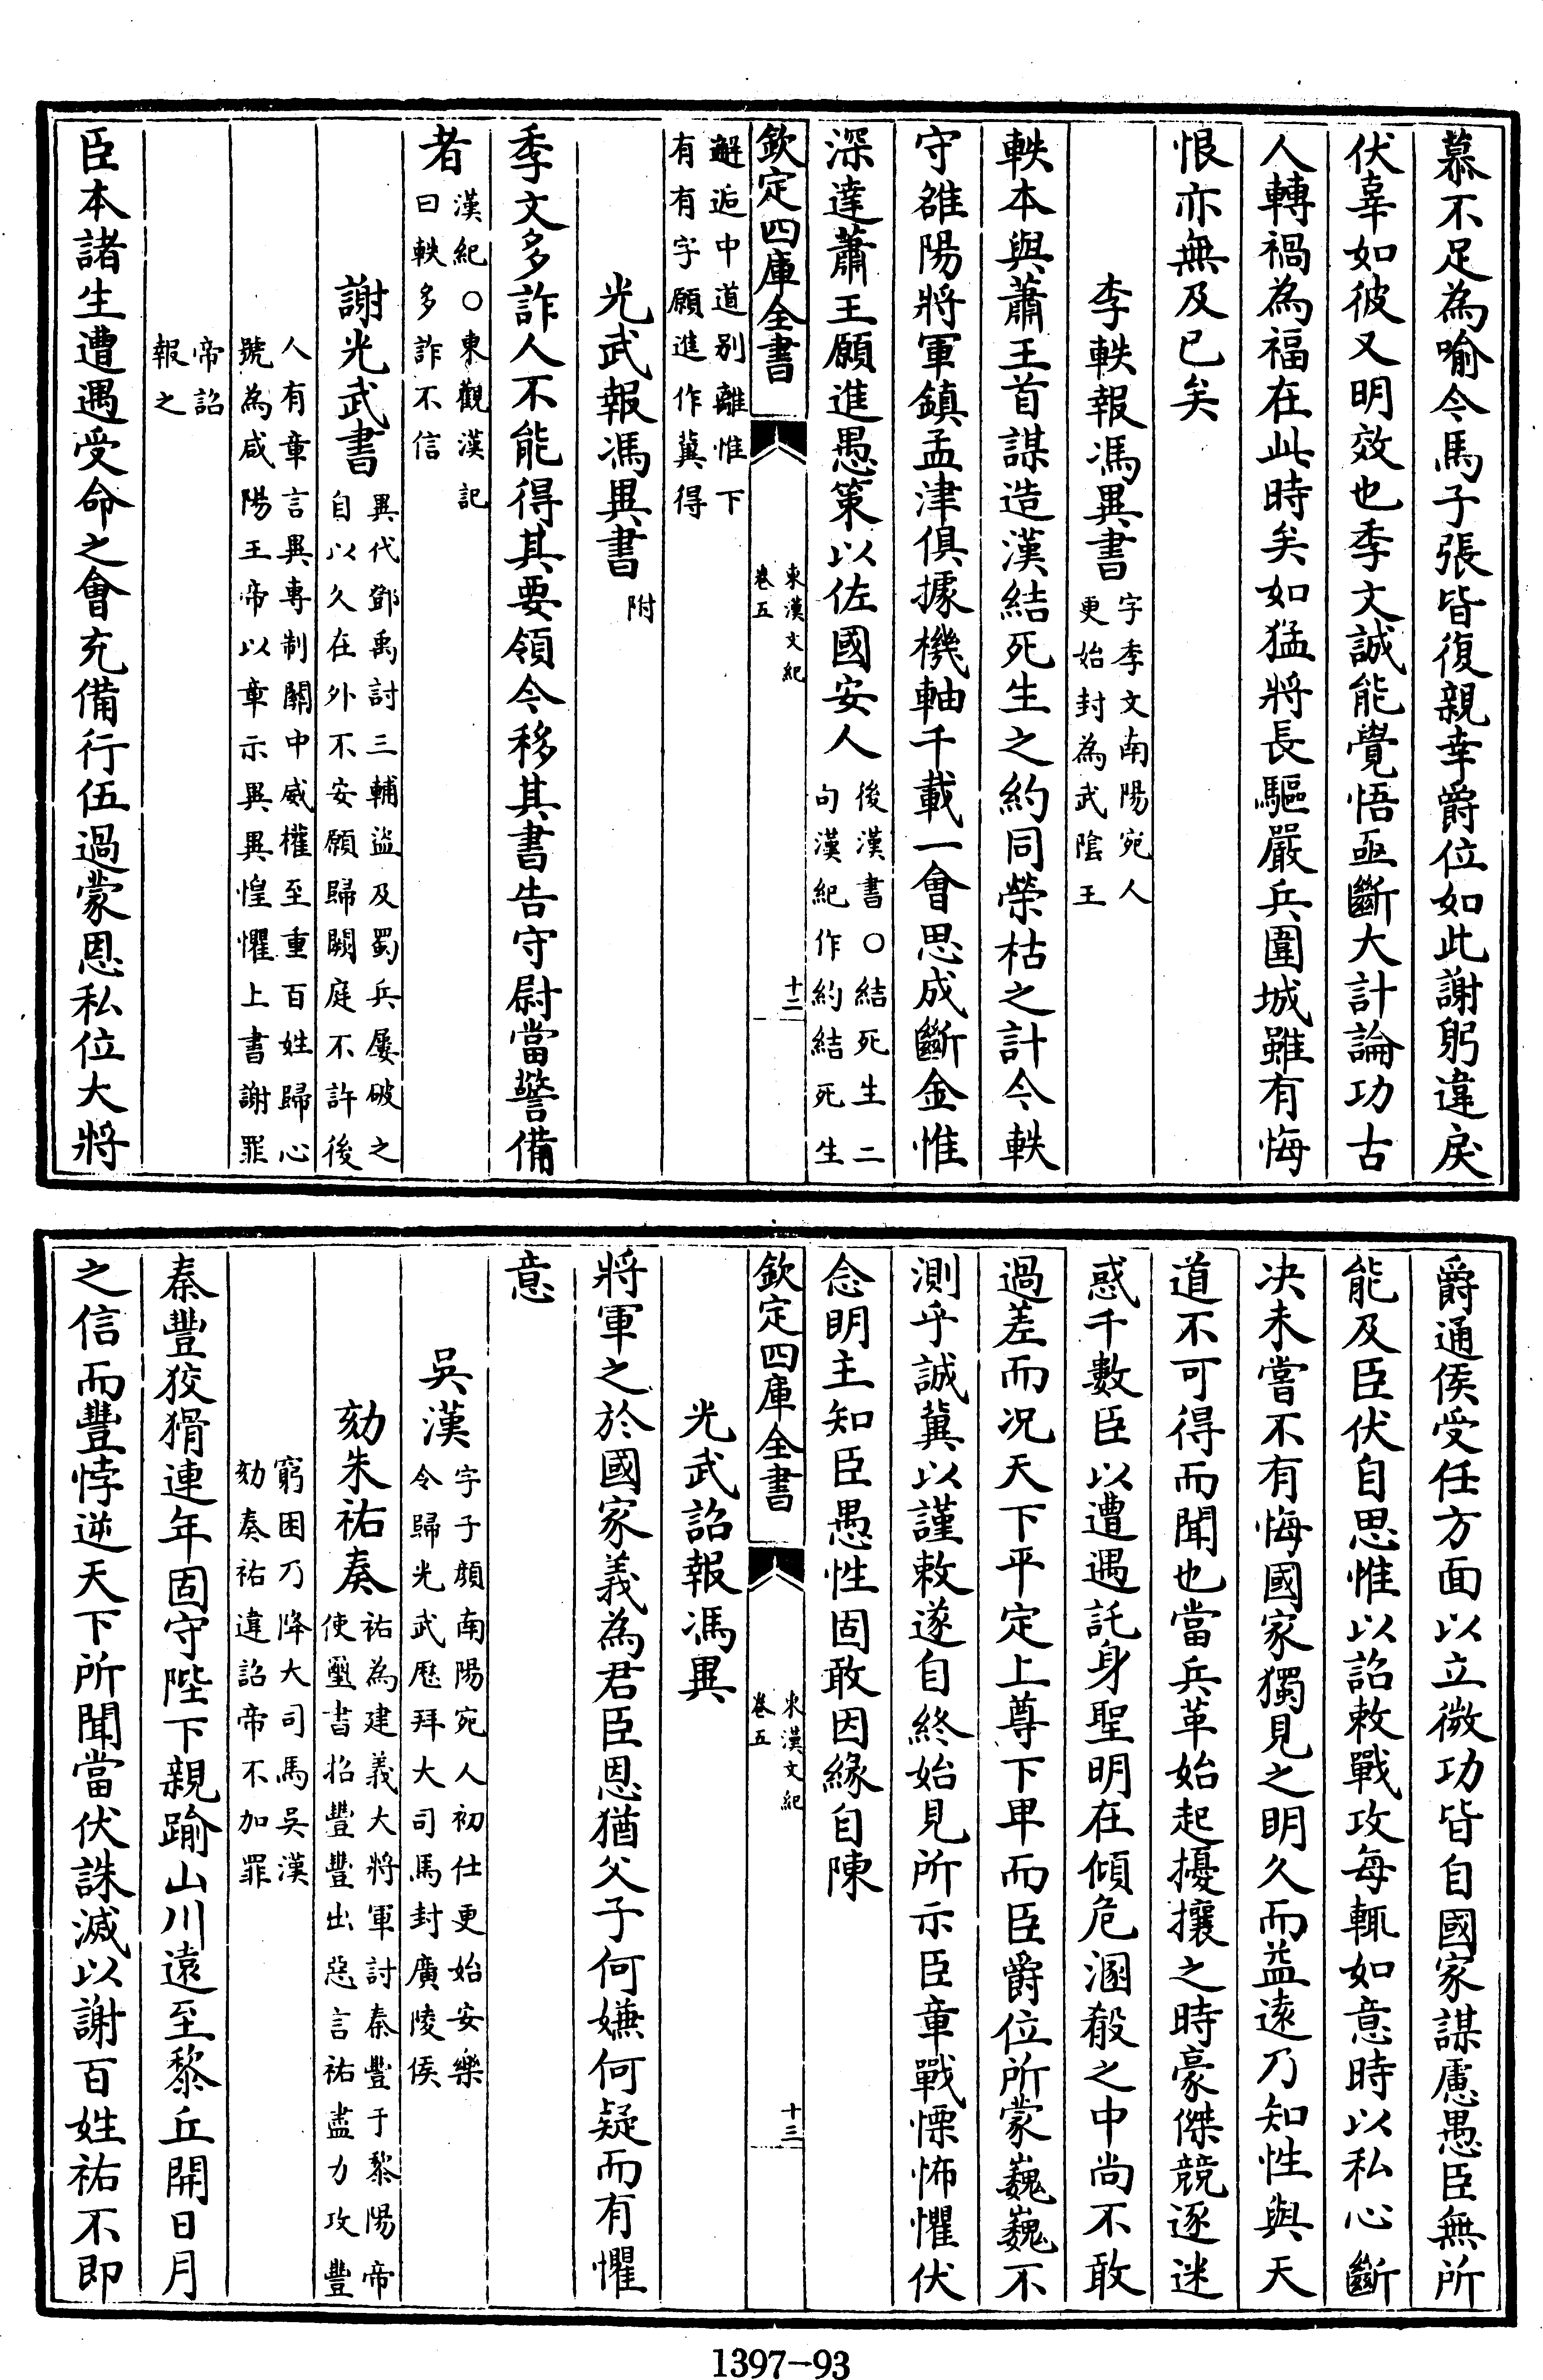 慕不足為喻今馬子張皆復親幸爵位如此謝躬違戾
伏辜如彼又明效也季文誠能覺悟亟斷大計論功古
人轉禍為福在此時矣如猛將長驅嚴兵圍城雖有悔
恨亦無及已矣
李軼報馮異書
字季文南陽宛人
更始封為武陰王
軼本與蕭王首謀造漢結死生之約同榮枯之計今軼
守雒陽將軍鎮孟津俱據機軸千載一會思成斷金惟
深達蕭王願進愚策以佐國安人
後漢書○結死生二
句漢紀作約結死生
欽定四庫全書
東漢文紀
卷五
十二
邂逅中道别離惟下
有有字願進作冀得
光武報馮異書
附
季文多詐人不能得其要領今移其書告守尉當警備
者
漢紀○東觀漢記
曰軼多詐不信
謝光武書
異代鄧禹討三輔盜及蜀兵屢破之
自以久在外不安願歸闕庭不許後
人有章言異專制關中威權至重百姓歸心
號為咸陽王帝以章示異異惶懼上書謝罪
帝詔
報之
臣本諸生遭遇受命之會充備行伍過蒙恩私位大將
爵通侯受任方面以立微功皆自國家謀慮愚臣無所
能及臣伏自思惟以詔敕戰攻每輒如意時以私心斷
决未嘗不有悔國家獨見之明久而益遠乃知性與天
道不可得而聞也當兵革始起擾攘之時豪傑競逐迷
惑千數臣以遭遇託身聖明在傾危溷殽之中尚不敢
過差而况天下平定上尊下卑而臣爵位所蒙巍巍不
測乎誠冀以謹敕遂自終始見所示臣章戰慄怖懼伏
念明主知臣愚性固敢因緣自陳
欽定四庫全書
東漢文紀
卷五
十三
光武詔報馮異
將軍之於國家義為君臣恩猶父子何嫌何疑而有懼
意
吳漢
字子顔南陽宛人初仕更始安樂
令歸光武歷拜大司馬封廣陵侯
劾朱祐奏
祐為建義大將軍討秦豐于黎陽帝
使璽書招豐豐出惡言祐盡力攻豐
窮困乃降大司馬吳漢
劾奏祐違詔帝不加罪
秦豐狡猾連年固守陛下親踰山川遠至黎丘開日月
之信而豐悖逆天下所聞當伏誅滅以謝百姓祐不即
1397—93